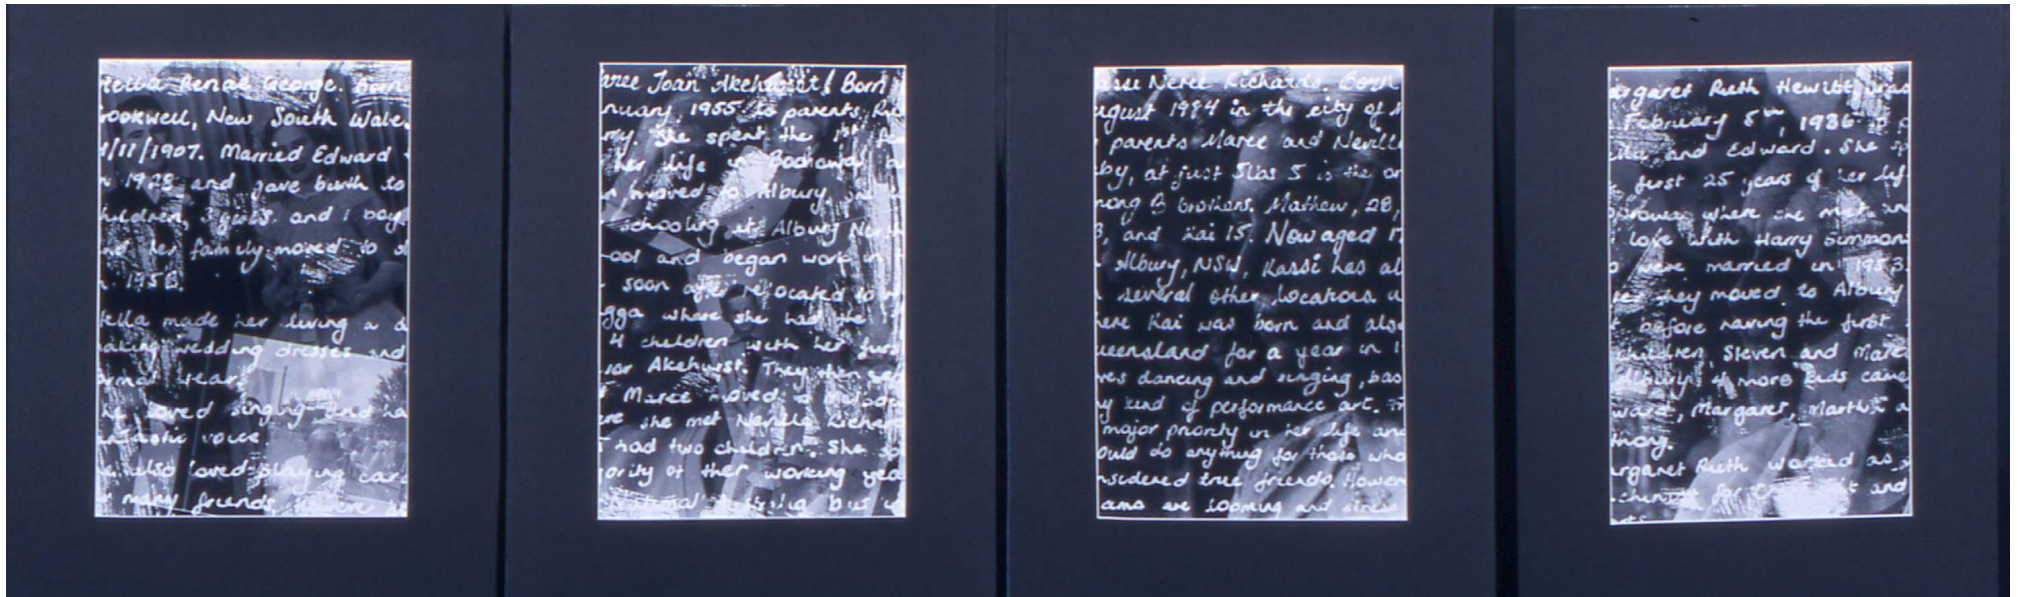 tella Renae George. Born
rookwell, New South Wale
1/11/1907. Married Edward
1925 and gave birth to
hildren, 3 girls. and 1 boy
nd her family moved to
1958.
tella made her living a d
aking wedding dresses and
ormal wear.
he loved singing and ha
antastic voice.
also loved playing car
many friends.
aree Joan Akehurst! Born
nuary, 1955 to parents
She spent the 1st
her life in
moved to Albury.
schooling at Albury North
ool and began work in
soon after relocated to
gga where she had the
4 children with her
Akehurst. They then
Maree moved to
ere she met Neville Richar
had two children. She
ority of her working yea
assi Neree Richards. Born
ugust 1984 in the city of
parents Maree and Neville
by, at just 5lbs 5 is the on
mong 3 brothers, Mathew, 28,
3, and Kai 15. Now aged 17
Albury, NSW, Kassi has al
several other locations
ere Kai was born and also
ueensland for a year in 1
ves dancing and singing, bas
ny kind of performance art.
major priority in her life and
ould do anything for those who
nsidered true friends. However
ams are looming and stress
argaret Ruth Hewitt was
February 8th, 1936 to p
and Edward. She sp
first 25 years of her
where she met and
love with Harry Simmons
were married in 1953.
they moved to Albury
before having the first
children, Steven and Maree
Albury 4 more kids came
ward, Margaret, Martin a
thony.
argaret Ruth worked as
for and